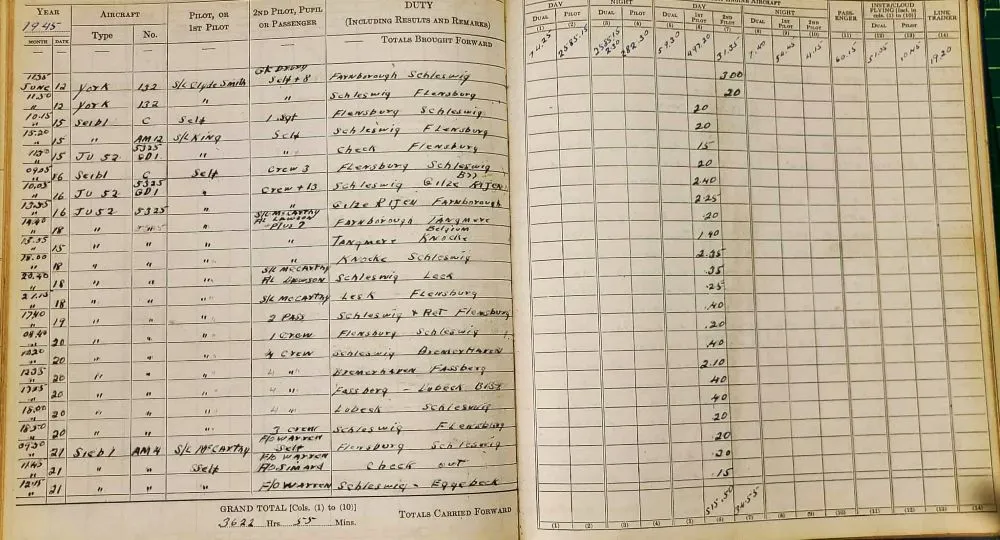 YEAR AIRCRAFT PILOT, OR 2ND PILOT, PUPIL DUTY
1945 1ST PILOT OR PASSENGER (INCLUDING RESULTS AND REMARKS)
MONTH DATE Type No. TOTALS BROUGHT FORWARD
1135 JUNE 12 York 132 S/L Clyde Smith Self + 8 Farnborough Schleswig 3.00
1150 " 12 York 132 " Schleswig Flensburg 20
10.15 " 15 Seibl C Self 1 Sgt Flensburg Schleswig 20
15.20 " 15 " AM 12 S/L King Self Schleswig Flensburg 20
" 15 JU 52 5325 GD1 " " Check Flensburg 15
0905 " 16 Seibl C Self Crew 3 Flensburg Schleswig 20
10.05 " 16 JU 52 5325 GD1 " Crew + 13 Schleswig Gilze RIJEN 2.40
" 16 JU52 5325 " " Gilze RIJEN Farnborough 2.25
" 18 " " " S/L McCarthy F/L Lawson Plus 7 Farnborough Tangmere 20
" 15 " " " " Tangmere Belgium Knocke 1.40
18.00 " 18 " " " " Knocke Schleswig 2.35
20.40 " 18 " " " S/L McCarthy F/L Lawson Schleswig Leck .35
" 18 " " " S/L McCarthy Leck Flensburg .25
1740 " 19 " " " 2 Pass Schleswig + Ret Flensburg .40
" 20 " " " 1 Crew Flensburg Schleswig .20
" 20 " " " 4 Crew Schleswig Bremerhaven .40
" 20 " " " 4 " Bremerhaven Fassberg 2.10
" 20 " " " 4 " Fassberg - Lubeck 40
18.00 " 20 " " " 4 " Lubeck - Schleswig 40
18.50 " 20 " " " 3 Crew Schleswig Flensburg 20
" 21 Siebl AM4 S/L McCarthy F/O Warren Self Flensburg Schleswig .20
" 21 " " Self F/O Warren F/O Simard Check out
" 21 " " " F/O Warren Schleswig - Eggebeck .15
GRAND TOTAL [Cols. (1) to (10)]
3622 Hrs. 55 Mins. TOTALS CARRIED FORWARD
DAY NIGHT DAY NIGHT PASS-ENGER INSTR/CLOUD FLYING [Incl. in cols. (1) to (10)] LINK TRAINER
DUAL PILOT DUAL PILOT DUAL 1ST PILOT 2ND PILOT DUAL 1ST PILOT 2ND PILOT DUAL PILOT
(1) (2) (3) (4) (5) (6) (7) (8) (9) (10) (11) (12) (13) (14)
74.25 2585.15 282.30 59.30 497.20 31.35 7.40 4.15 60.15 10.45 19.20
515.50 34.55
(1) (2) (3) (4) (5) (6) (7) (8) (9) (10) (11) (12) (13) (14)